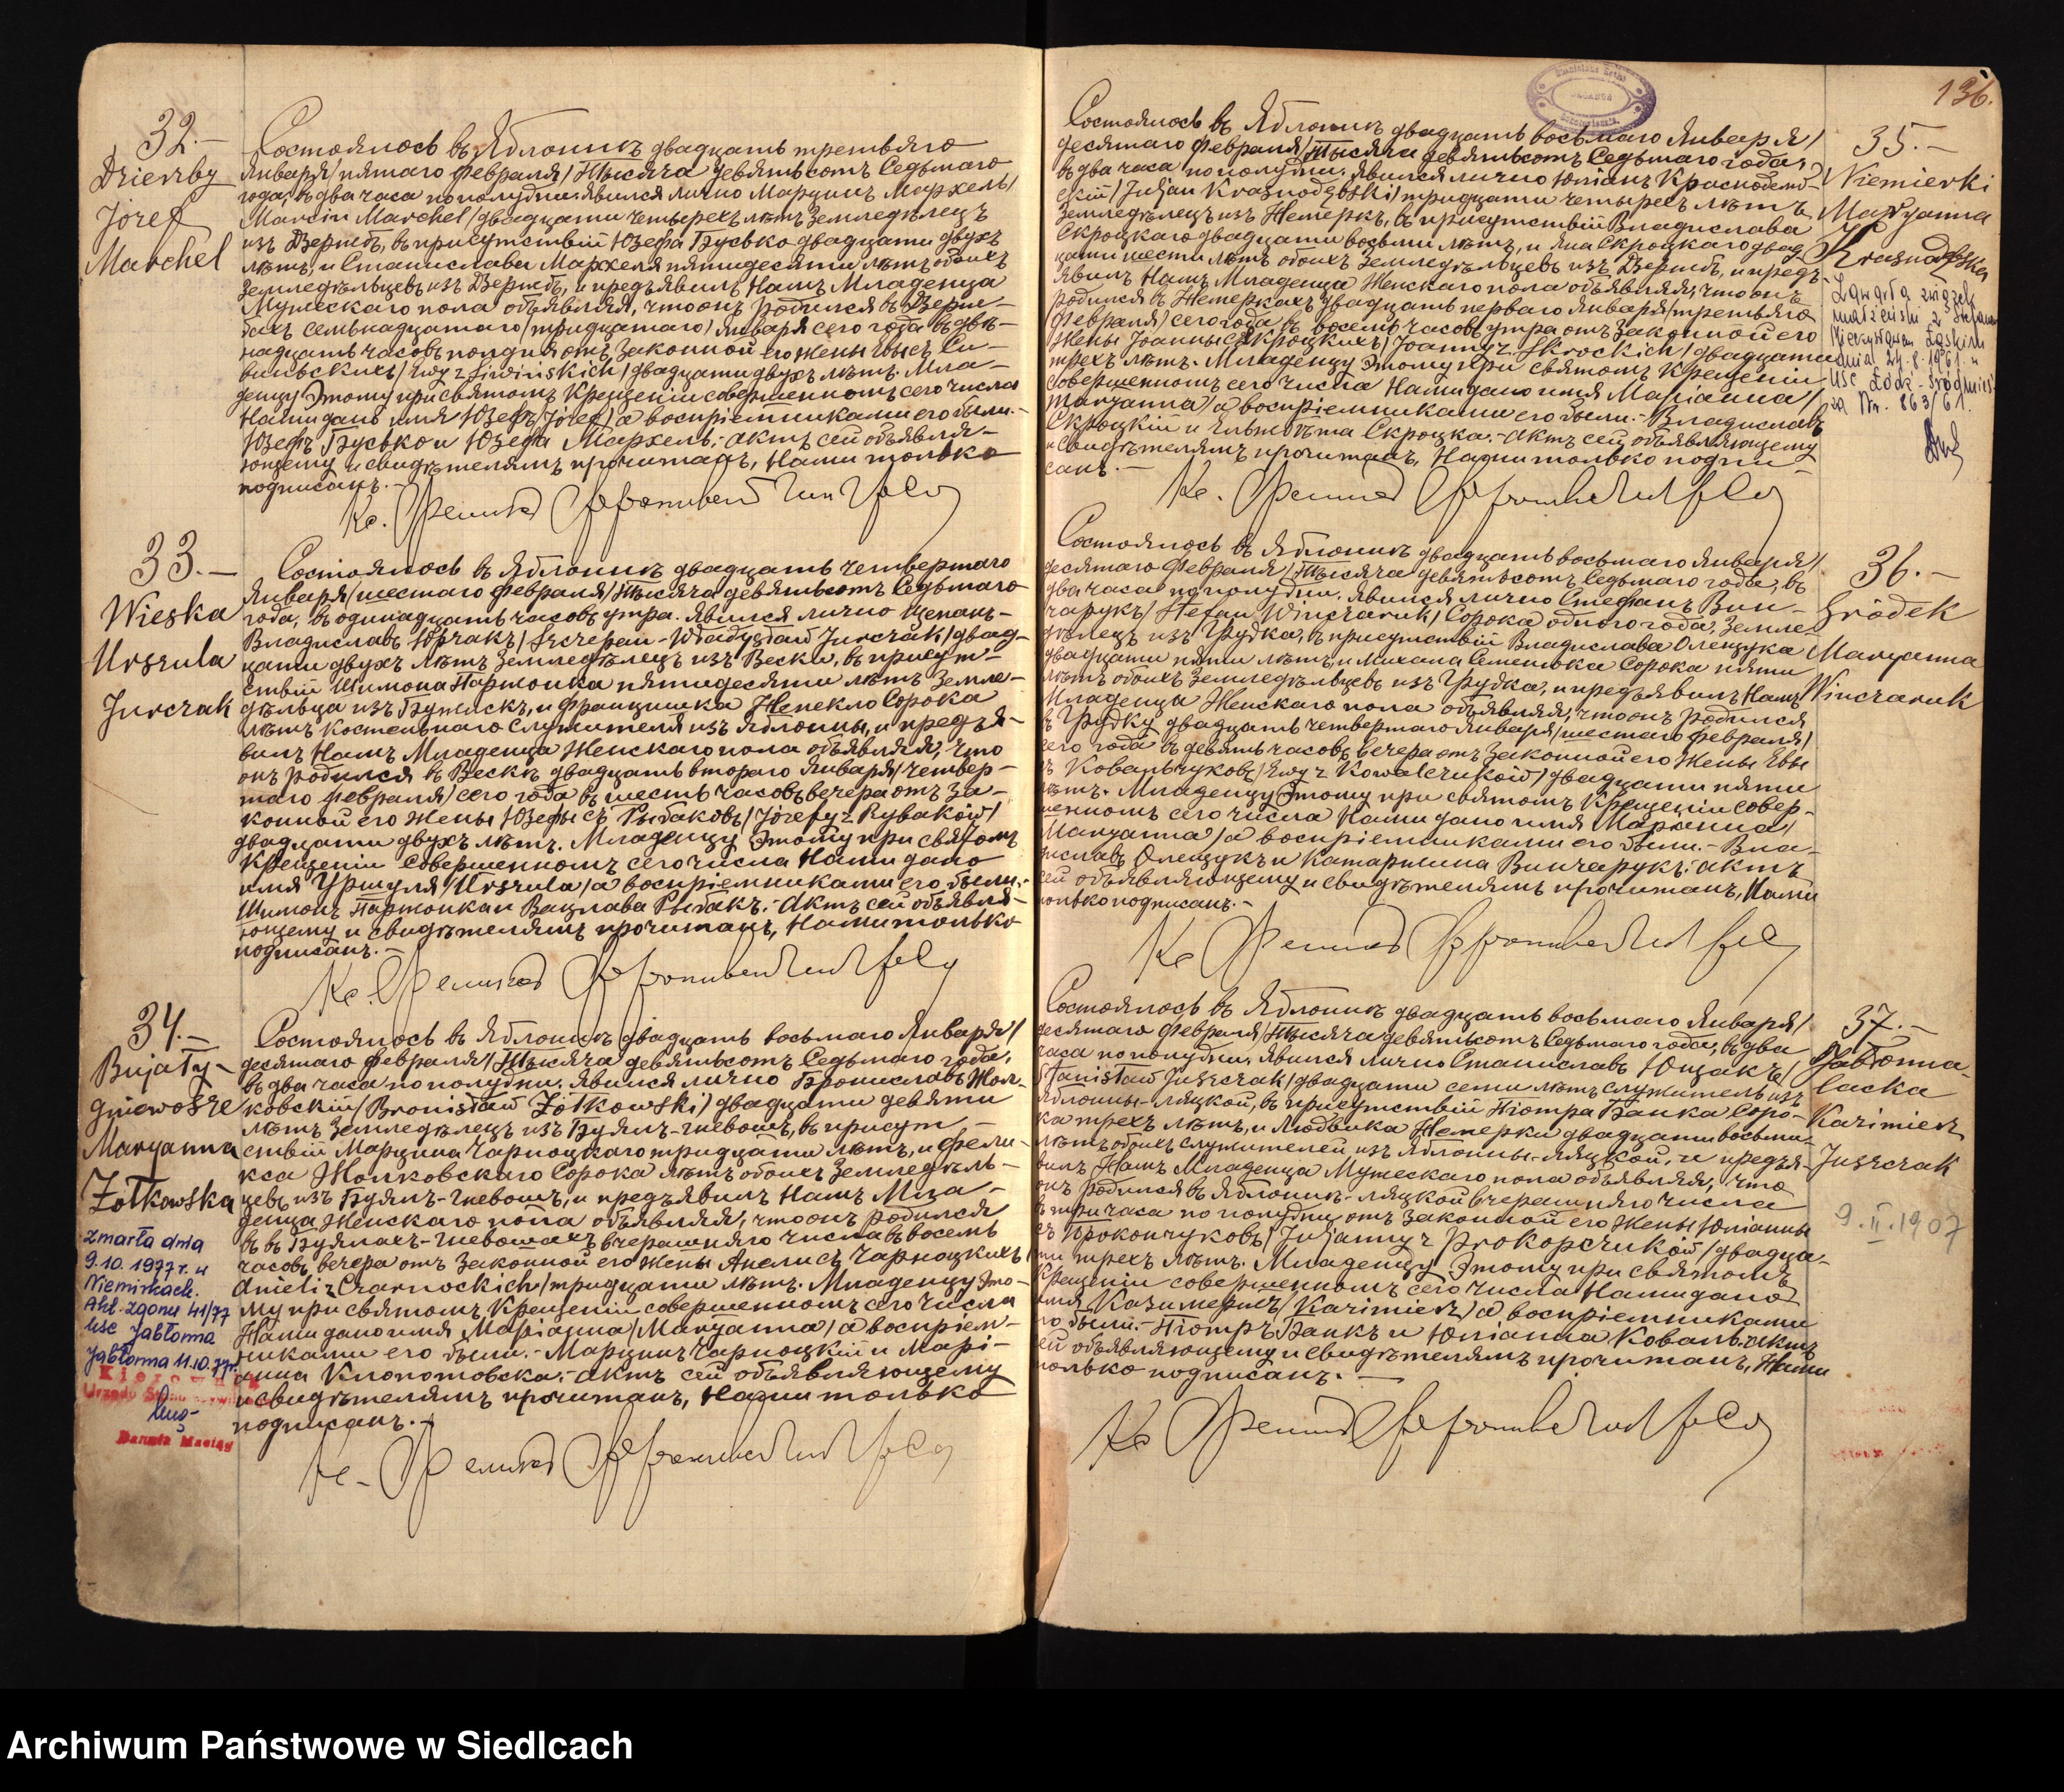 32.—
Dzierzby
Józef
Marchel
Состоялось въ Яблоннѣ двадцать третьяго
Января /пятаго Февраля/ Тысяча девятьсотъ Седьмаго
года, въ два часа пополудни. Явился лично Марцинъ Мархель/
Marcin Marchel/ двадцати четырехъ лѣтъ земледѣлецъ
изъ Дзержбъ, въ присутствіи Юзефа Бусько двадцати двухъ
лѣтъ, и Станислава Мархеля пятидесяти лѣтъ обоихъ
земледѣльцевъ изъ Дзержбъ, и предъявилъ Намъ Младенца
Мужескаго пола объявляя, что онъ родился въ Дзерж-
бахъ семьнадцатаго /тридцатаго/ Января сего года въ две-
надцать часовъ полдня отъ законной его жены Евы съ Си-
виньскихъ/ Ewy z Siwińskich/ двадцати двухъ лѣтъ. Мла-
денцу Этому при святомъ Крещеніи совершенномъ сего числа
Нами дано имя Юзефъ/ Józef/ а воспріемниками его были.-
Юзефъ Бусько и Юзефа Мархель.- Актъ сей объявля-
ющему и свидѣтелямъ прочитанъ, Нами только
подписанъ.-
33.—
Wieska
Urszula
Jurczak
Состоялось въ Яблоннѣ двадцать четвертаго
Января /шестаго Февраля/ Тысяча девятьсотъ Седьмаго
года, въ одинадцать часовъ утра. Явился лично Щепанъ-
Владиславъ Юрчакъ/ Szczepan-Władysław Jurczak/ двад-
цати двухъ лѣтъ земледѣлецъ изъ Вески, въ присут-
ствіи Шимона Партыка пятидесяти лѣтъ земле-
дѣльца изъ и Францишка Сорока
лѣтъ костельнаго служителя изъ Яблонны, и предъя-
вилъ Намъ Младенца Женскаго пола объявляя, что
онъ родился въ Вескѣ двадцать втораго Января /четвер-
таго Февраля/ сего года въ шесть часовъ вечера отъ за-
конной его жены Юзефы съ Рыбаковъ/ Józefy z Rybaków/
двадцати двухъ лѣтъ. Младенцу Этому при святомъ
Крещеніи совершенномъ сего числа Нами дано
имя Уршуля/ Urszula/ а воспріемниками его были.-
Шимонъ и Вацлава Рыбакъ.- Актъ сей объявля-
ющему и свидѣтелямъ прочитанъ, Нами только
подписанъ.-
34.—
Bujały-
gniewosze
Maryanna
Żółkowska
Zmarła dnia
9.10.1977 r. w
Niemirkach.
Akt. zgonu 41/77
USC Jabłonna
Jabłonna 11.10.77r.
Kierownik
Danuta Maciąg
Состоялось въ Яблоннѣ двадцать восьмаго Января/
десятаго Февраля/ Тысяча девятьсотъ Седьмаго года,
въ два часа пополудни. Явился лично Брониславъ Жол-
ковскій/ Bronisław Żółkowski/ двадцати девяти
лѣтъ земледѣлецъ изъ Буялъ-Гневошъ, въ присут-
ствіи Марцина Чарноцкаго тридцати лѣтъ, и Фели-
кса Жолковскаго Сорока лѣтъ обоихъ земледѣль-
цевъ изъ Буялъ-Гневошъ, и предъявилъ Намъ Мла-
денца Женскаго пола объявляя, что онъ родился
въ въ Буялахъ-Гневошахъ вчерашняго числа въ восемь
часовъ вечера отъ законной его жены Анели съ Чарноцкихъ/
Anieli z Czarnockich/ тридцати лѣтъ. Младенцу Это-
му при святомъ Крещеніи совершенномъ сего числа
Нами дано имя Маріанна/ Maryanna/ а воспріем-
никами его были.- Марцинъ Чарноцкій и Марі-
анна Клопотовска.- Актъ сей объявляющему
и свидѣтелямъ прочитанъ, Нами только
подписанъ.-
136.
Состоялось въ Яблоннѣ двадцать восьмаго Января/
десятаго Февраля/ Тысяча девятьсотъ Седьмаго года,
въ два часа пополудни. Явился лично Юліанъ Краснодемб-
скій/ Juljan Krasnodębski/ тридцати четырехъ лѣтъ
земледѣлецъ изъ Немеркъ, въ присутствіи Владислава
Скроцкаго двадцати восьми лѣтъ, и Яна Скроцкаго двад-
цати шести лѣтъ обоихъ земледѣльцевъ изъ Дзержбъ, и предъ-
явилъ Намъ Младенца Женскаго пола объявляя, что онъ
родился въ Немеркахъ двадцать перваго Января /третьяго
Февраля/ сего года въ восемь часовъ утра отъ законной его
жены Іоанны съ Скроцкихъ/ Joanny z Skrockich/ двадцати
трехъ лѣтъ. Младенцу Этому при святомъ Крещеніи
совершенномъ сего числа Нами дано имя Маріанна/
Maryanna/ а воспріемниками его были.- Владиславъ
Скроцкій и Ельжбѣта Скроцка.- Актъ сей объявляющему
и свидѣтелямъ прочитанъ, Нами только подпи-
санъ.-
35.—
Niemierki
Maryanna
Krasnodębska
Zawarła związek
małżeński z Stefanem
Mieczysławem
dnia 24.8.1961 w
USC Łódź-Śródmieś
za Nr. 863/61.
Состоялось въ Яблоннѣ двадцать восьмаго Января/
десятаго Февраля/ Тысяча девятьсотъ Седьмаго года, въ
два часа пополудни. Явился лично Стефанъ Вин-
чарукъ/ Stefan Winczaruk/ Сорока одного года, земле-
дѣлецъ изъ Грудка, въ присутствіи Владислава Олещука
двадцати пяти лѣтъ, и Михала Семенюка Сорока пяти
лѣтъ обоихъ земледѣльцевъ изъ Грудка, и предъявилъ Намъ
Младенца Женскаго пола объявляя, что онъ родился
въ Грудку двадцать четвертаго Января /шестаго Февраля/
сего года въ девять часовъ вечера отъ законной его жены Евы
съ Ковальчуковъ/ Ewy z Kowalczuków/ двадцати пяти
лѣтъ. Младенцу Этому при святомъ Крещеніи совер-
шенномъ сего числа Нами дано имя Маріанна/
Maryanna/ а воспріемниками его были.- Вла-
диславъ Олещукъ и Катаржина Винчарукъ.- Актъ
сей объявляющему и свидѣтелямъ прочитанъ, Нами
только подписанъ.-
36.—
Gródek
Maryanna
Winczaruk
Состоялось въ Яблоннѣ двадцать восьмаго Января/
десятаго Февраля/ Тысяча девятьсотъ Седьмаго года, въ два
часа пополудни. Явился лично Станиславъ Ющакъ/
Stanisław Juszczak/ двадцати семи лѣтъ служитель изъ
Яблонны-Ляцкой, въ присутствіи Піотра Банка Соро-
ка трехъ лѣтъ, и Людвика Немерки двадцати восьми
лѣтъ обоихъ служителей изъ Яблонны-Ляцкой, и предъя-
вилъ Намъ Младенца Мужескаго пола объявляя, что
онъ родился въ Яблоннѣ-Ляцкой вчерашняго числа
въ три часа пополудни отъ законной его жены Юліанны
съ Прокопчуковъ/ Juljanny z Prokopczuków/ двадца-
ти трехъ лѣтъ. Младенцу Этому при святомъ
Крещеніи совершенномъ сего числа Нами дано
имя Казимержъ/ Kazimierz/ а воспріемниками
его были.- Піотръ Банкъ и Юліанна Коваль.- Актъ
сей объявляющему и свидѣтелямъ прочитанъ, Нами
только подписанъ.—
37.—
Jabłonna-
lacka
Kazimierz
Juszczak
9.II.1907
Archiwum Państwowe w Siedlcach